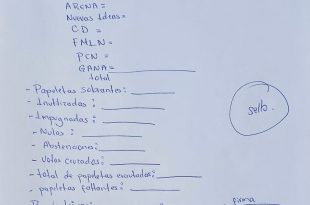 ARENA =
Nuevas Ideas =
CD =
FMLN =
PCN =
GANA =
total
- Papeletas sobrantes :
- Inutilizadas :
- Impugnadas :
- Nulos :
- Abstenciones :
- Votos cruzados :
- total de papeletas escrutadas :
- papeletas faltantes :
sello.
Firma